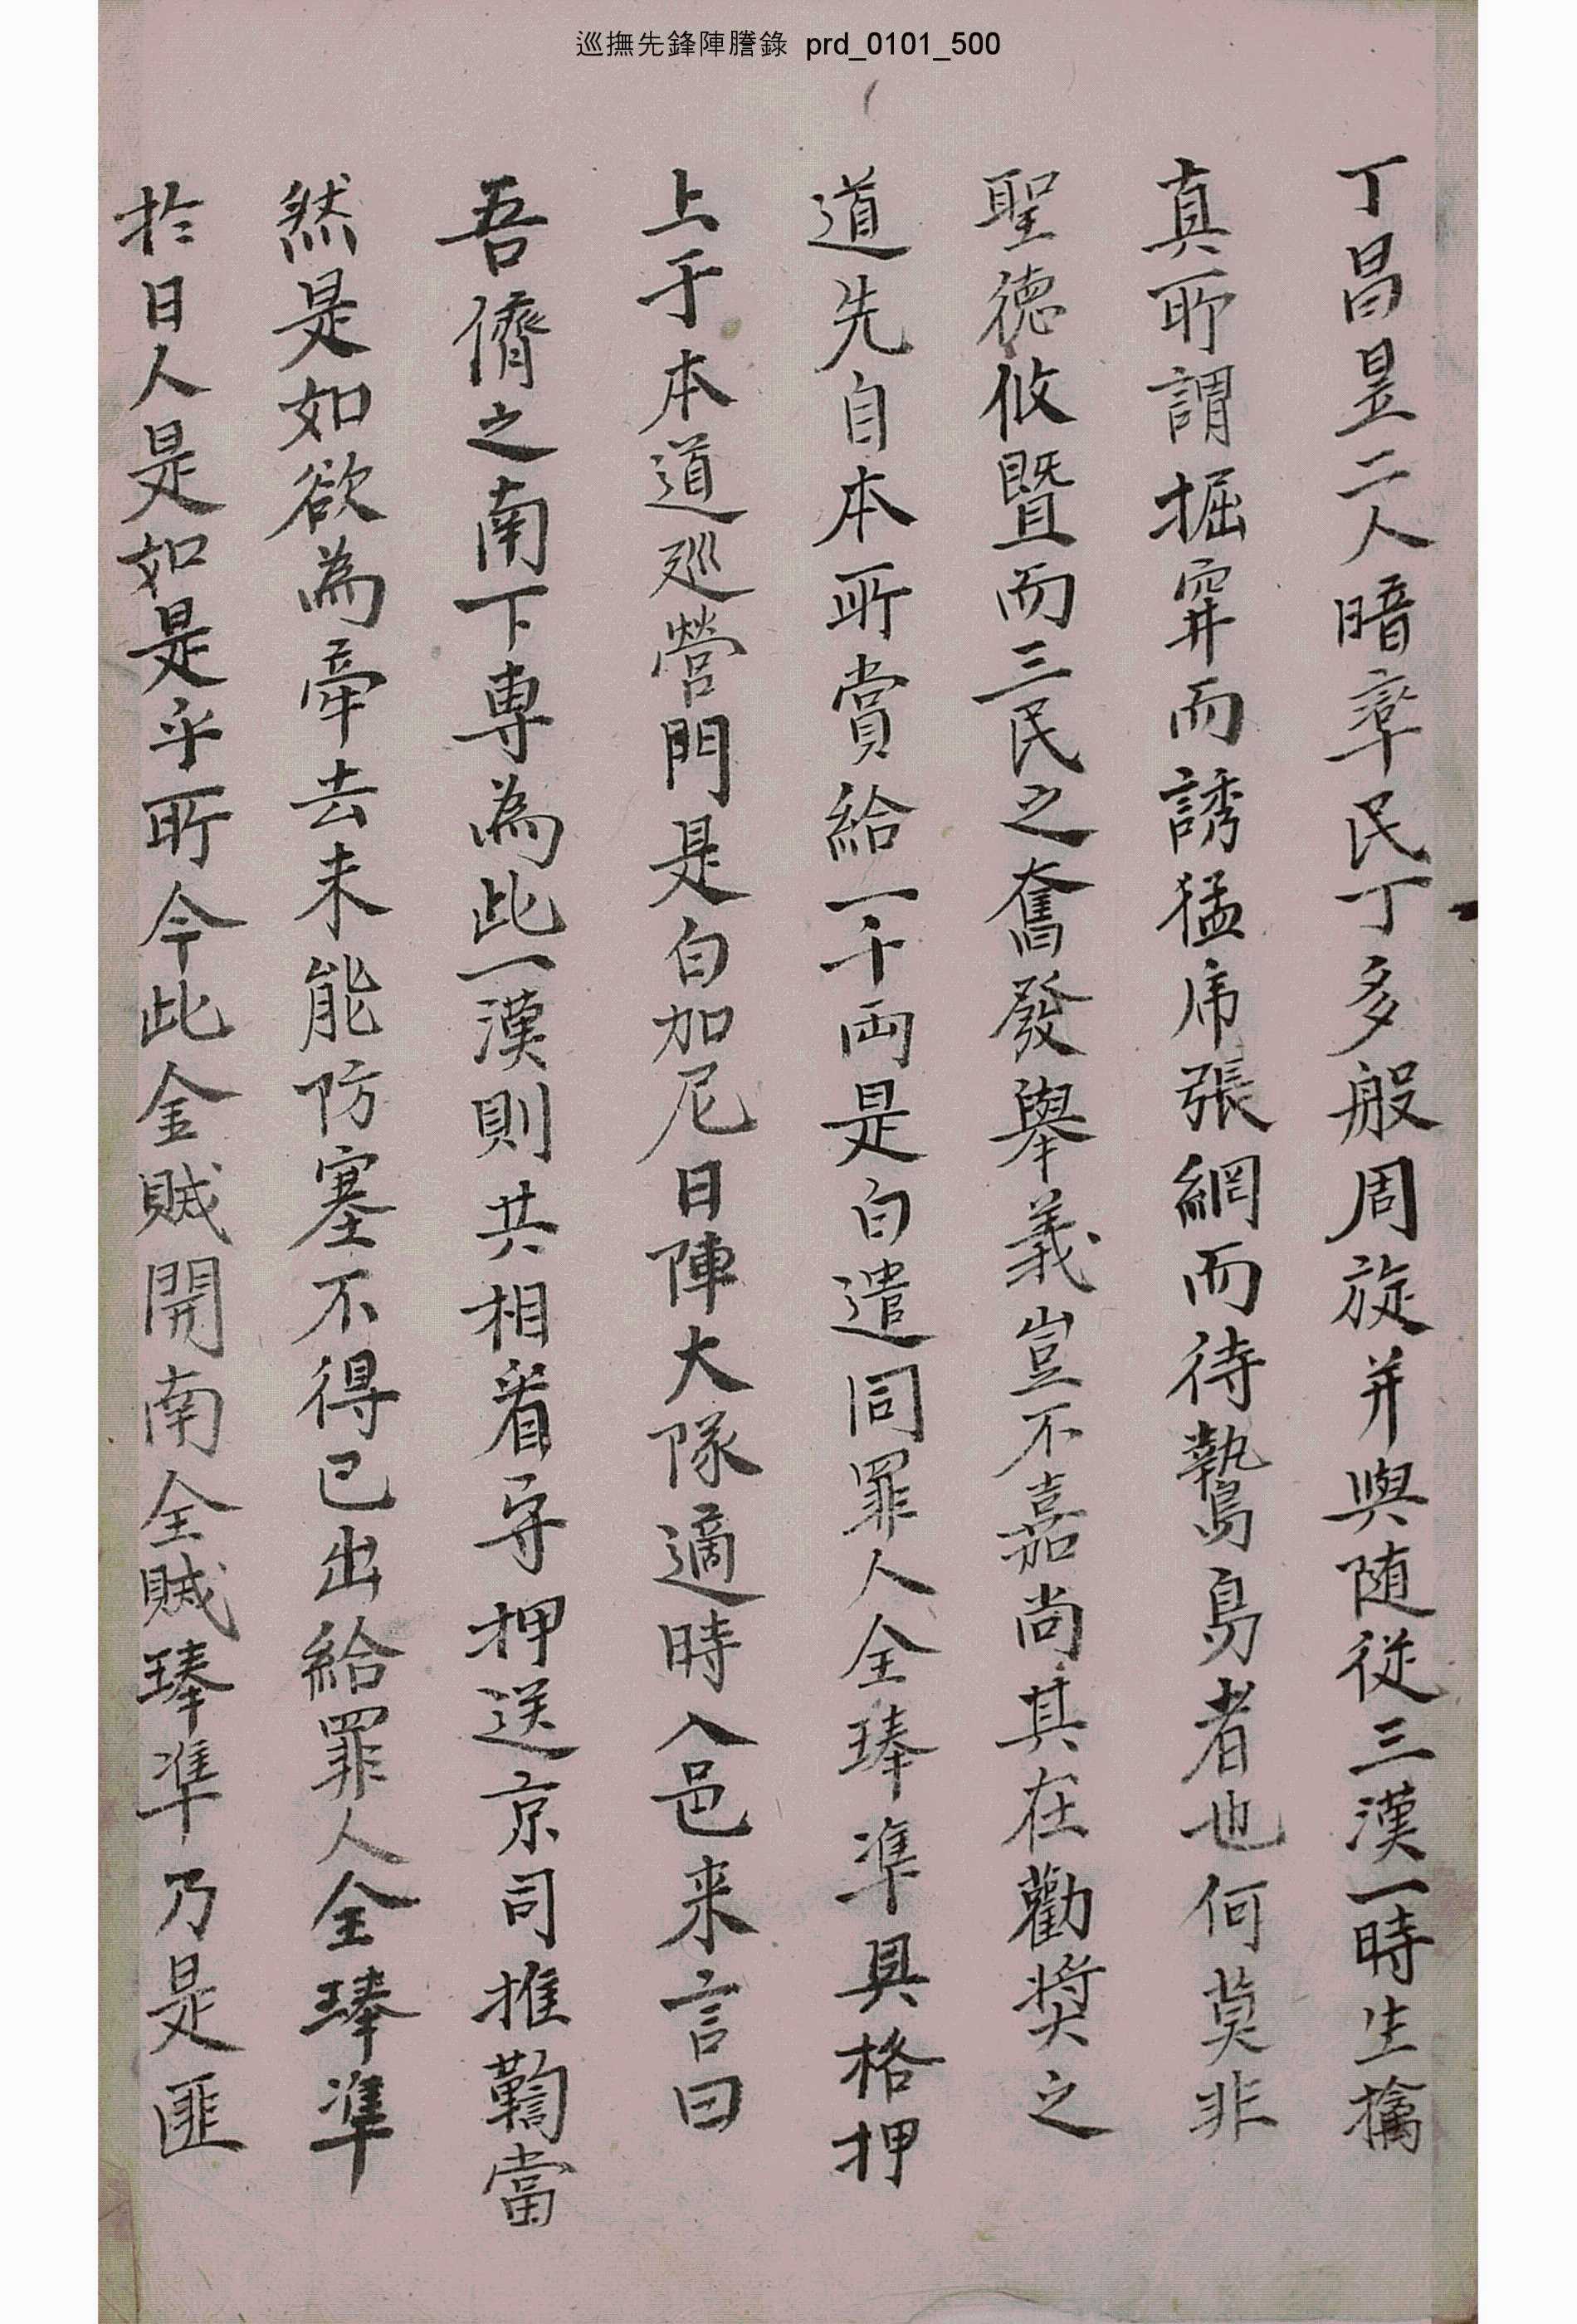 巡撫先鋒陣謄錄 prd_0101_500
丁昌昱二人暗率民丁多般周旋并與随從三漢一時生擒
真所謂掘穽而誘猛席張網而待鷙鳥者也何莫非
聖德攸曁而三民之奮發擧義豈不嘉尚其在勸奬之
道先自本所賞給一千両是白遣同罪人全琫準具格押
上于本道廵營門是白加尼日陣大隊適時入邑来言曰
吾儕之南下専為此一漢則共相看守押送京司推鞫當
然是如欲為牽去未能防塞不得已出給罪人全琫準
於日人是如是乎所今此金賊開南全賊琫準乃是匪